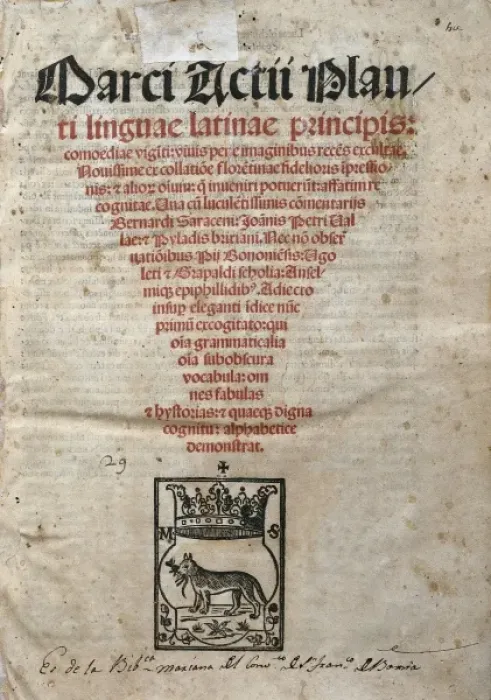 Marci Actii Plau/
ti linguae latinae principis:
comoediae vigĩti: viuis pene imaginibus recẽs excultae.
Nouissime ex collatiõe florẽtinae fidelioris ĩpressio
nis: & alior̃ oĩuiũ: q̃ inueniri potuerũt: affatim re
cognitae. Una cũ luculẽtissimis cõmentarijs
Bernardi Saraceni: Ioãnis Petri Val
lae: & Pyladis brixiani. Nec nõ obser
uatiõibus Pij Bononiẽsis: Ugo
leti & Grapaldi scholia: Ansel
miq; epiphillidibꝰ. Adiecto
insup eleganti ĩdice nũc
primũ excogitato: qui
oĩa grammaticalia
oĩa subobscura
vocabula: om
nes fabulas
& hystorias: & quaeq; digna
cognitu: alphabetice
demonstrat.
29
M S
Es de la Bib.ca Mariana del Conv.to de S. fran.co de Borxa